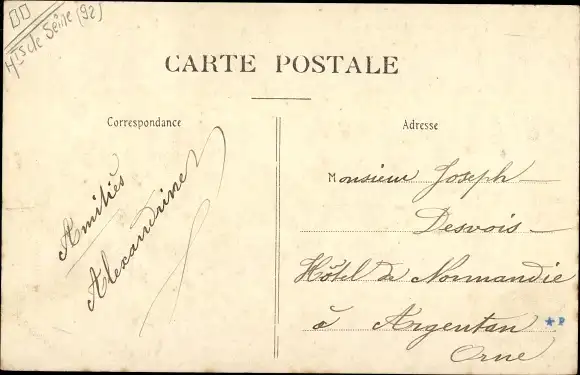 Hts de Seine (92)
CARTE POSTALE
Correspondance
Adresse
Amitiés
Alexandrine
Monsieur Joseph
Desvois
Hôtel de Normandie
à Argentan
Orne
*P